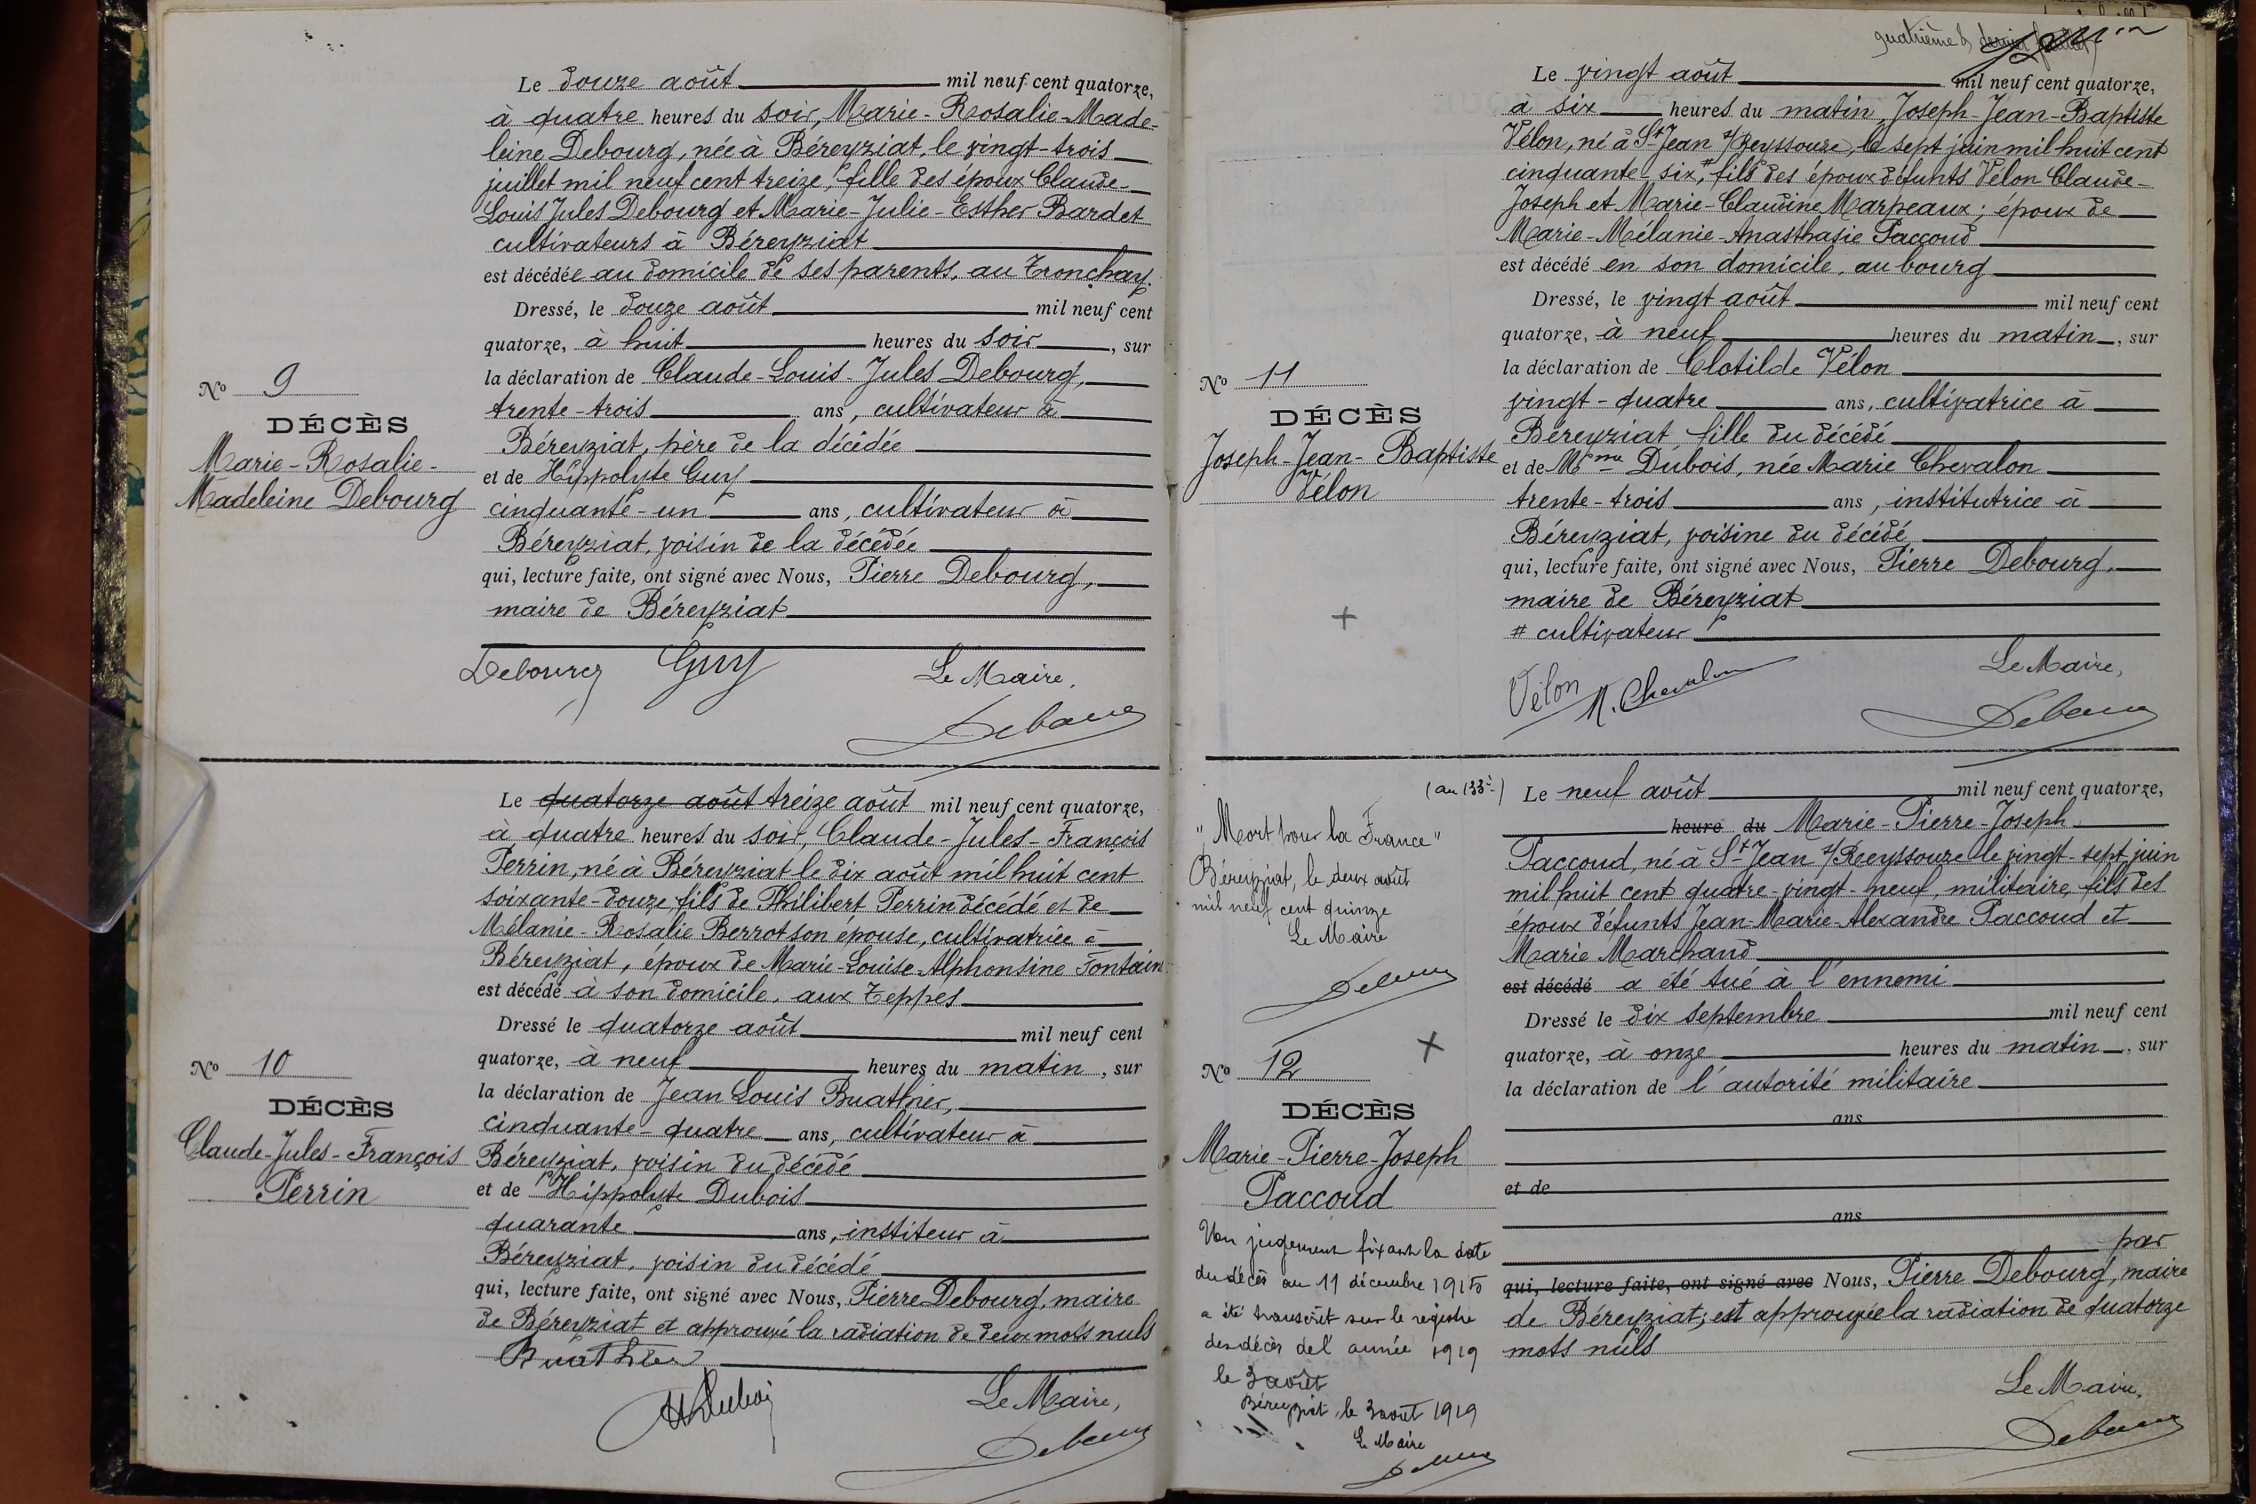 Le douze août mil neuf cent quatorze,
à quatre heures du soir, Marie-Rosalie-Made-
leine Debourg, née à Béreyziat, le vingt-trois
juillet mil neuf cent treize, fille des époux Claude-
Louis Jules Debourg et Marie-Julie-Esther Bardet
cultivateurs à Béreyziat
est décédée au domicile de ses parents, au Tronchay.
Dressé, le douze août mil neuf cent
quatorze, à huit heures du soir, sur
la déclaration de Claude-Louis-Jules Debourg,
trente-trois ans, cultivateur à
Béreyziat, père de la décédée
et de Hippolyte Guy
cinquante-un ans, cultivateur à
Béreyziat, voisin de la décédée
qui, lecture faite, ont signé avec Nous, Pierre Debourg,
maire de Béreyziat
No 9
DÉCÈS
Marie-Rosalie-
Madeleine Debourg
Debourg Guy Le Maire,
Debourg
Le quatorze août treize août mil neuf cent quatorze,
à quatre heures du soir, Claude-Jules-François
Perrin, né à Béreyziat le dix août mil huit cent
soixante-douze, fils de Philibert Perrin décédé et de
Mélanie-Rosalie Berrot son épouse, cultivatrice à
Béreyziat, époux de Marie-Louise-Alphonsine Fontain
est décédé à son domicile, aux Teppes
Dressé le quatorze août mil neuf cent
quatorze, à neuf heures du matin, sur
la déclaration de Jean Louis Buathier,
cinquante-quatre ans, cultivateur à
Béreyziat, voisin du décédé
et de Hippolyte Dubois
quarante ans, institeur à
Béreyziat, voisin du décédé
qui, lecture faite, ont signé avec Nous, Pierre Debourg, maire
de Béreyziat et approuvé la radiation de deux mots nuls
Buathier
No 10
DÉCÈS
Claude-Jules-François
Perrin
H Dubois Le Maire,
Debourg
quatrième & dernier feuillet
Le vingt août mil neuf cent quatorze,
à six heures du matin, Joseph-Jean-Baptiste
Vélon, né à St Jean s/Reyssouze, le sept juin mil huit cent
cinquante-six, # fils des époux défunts Vélon Claude-
Joseph et Marie-Claudine Marpeaux; époux de
Marie-Mélanie-Anasthasie Paccoud
est décédé en son domicile, au bourg
Dressé, le vingt août mil neuf cent
quatorze, à neuf heures du matin, sur
la déclaration de Clotilde Vélon
vingt-quatre ans, cultivatrice à
Béreyziat, fille du décédé
et de Mme Dubois, née Marie Chevalon
trente-trois ans, institutrice à
Béreyziat, voisine du décédé
qui, lecture faite, ont signé avec Nous, Pierre Debourg,
maire de Béreyziat
# cultivateur
No 11
DÉCÈS
Joseph-Jean-Baptiste
Vélon
+
Vélon M. Chevalon Le Maire,
Debourg
Le neuf août mil neuf cent quatorze,
heure du Marie-Pierre-Joseph
Paccoud, né à St Jean s/Reeyssouze le vingt-sept juin
mil huit cent quatre-vingt-neuf, militaire, fils des
époux défunts Jean-Marie-Alexandre Paccoud et
Marie Marchand
est décédé a été tué à l'ennemi
Dressé le dix septembre mil neuf cent
quatorze, à onze heures du matin, sur
la déclaration de l'autorité militaire
ans
et de
ans
par
qui, lecture faite, ont signé avec Nous, Pierre Debourg, maire
de Béreyziat; est approuvée la radiation de quatorze
mots nuls
Le Maire,
Debourg
"Mort pour la France"
Béreyziat, le deux août
mil neuf cent quinze
Le Maire
Debourg
No 12
+
DÉCÈS
Marie-Pierre-Joseph
Paccoud
Un jugement fixant la date
du décès au 11 décembre 1915
a été transcrit sur le registre
des décès de l'année 1919
le 3 août
Béreyziat, le 3 août 1919
Le Maire
Debourg